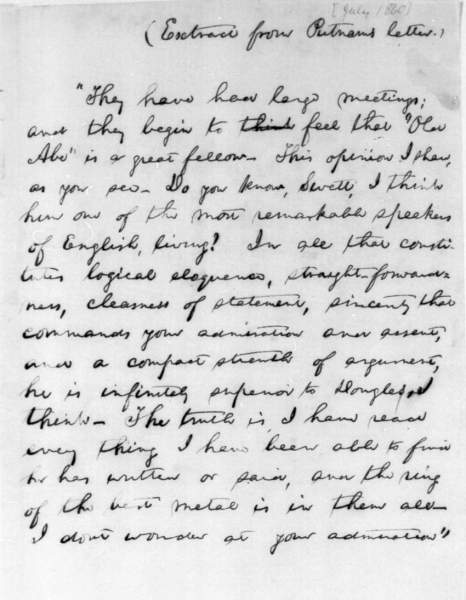 [July 1860]
(Extract from Putnams letter.)
"They have had large meetings;
and they begin to think feel that "Old
Abe" is a great fellow— This opinion I share,
as you see— Do you know, Swett, I think
him one of the most remarkable speakers
of English, living? In all that consti-
tutes logical eloquence, straight-forward-
ness, clearness of statement, sincerity that
commands your admiration and assent,
and a compact strength of argument,
he is infinitely superior to Douglas, I
think— The truth is, I have read
every thing I have been able to find
he has written or said, and the ring
of the best metal is in them all—
I dont wonder at your admiration"